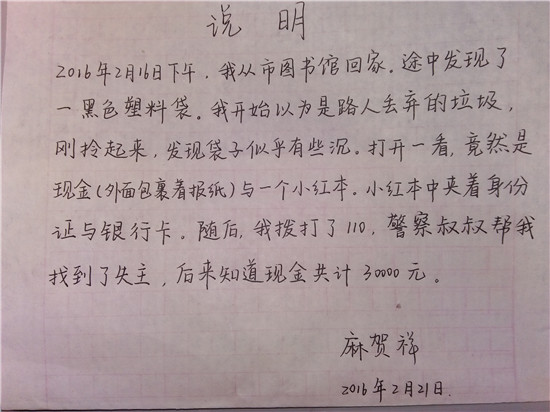 说 明
2016年2月16日下午，我从市图书馆回家。途中发现了
一黑色塑料袋。我开始以为是路人丢弃的垃圾，
刚拎起来，发现袋子似乎有些沉。打开一看，竟然是
现金(外面包裹着报纸)与一个小红本。小红本中夹着身份
证与银行卡。随后，我拨打了110，警察叔叔帮我
找到了失主，后来知道现金共计30000元。
麻贺祥
2016年2月21日.